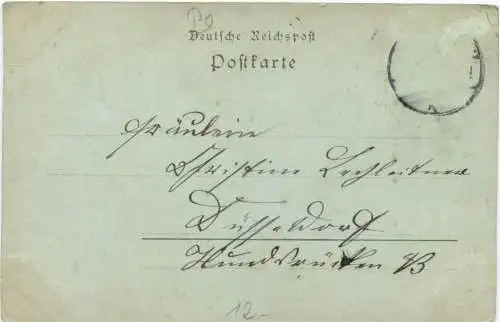 PO
Deutsche Reichspost
Postkarte
Fräulein
Christine Lechleitner
Düsseldorf
Hundsrücken
12.-